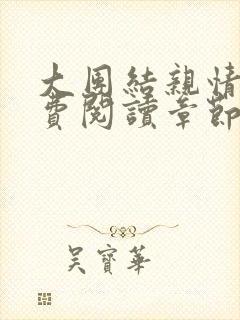 大團結親情
費閱讀章節
吳寶華